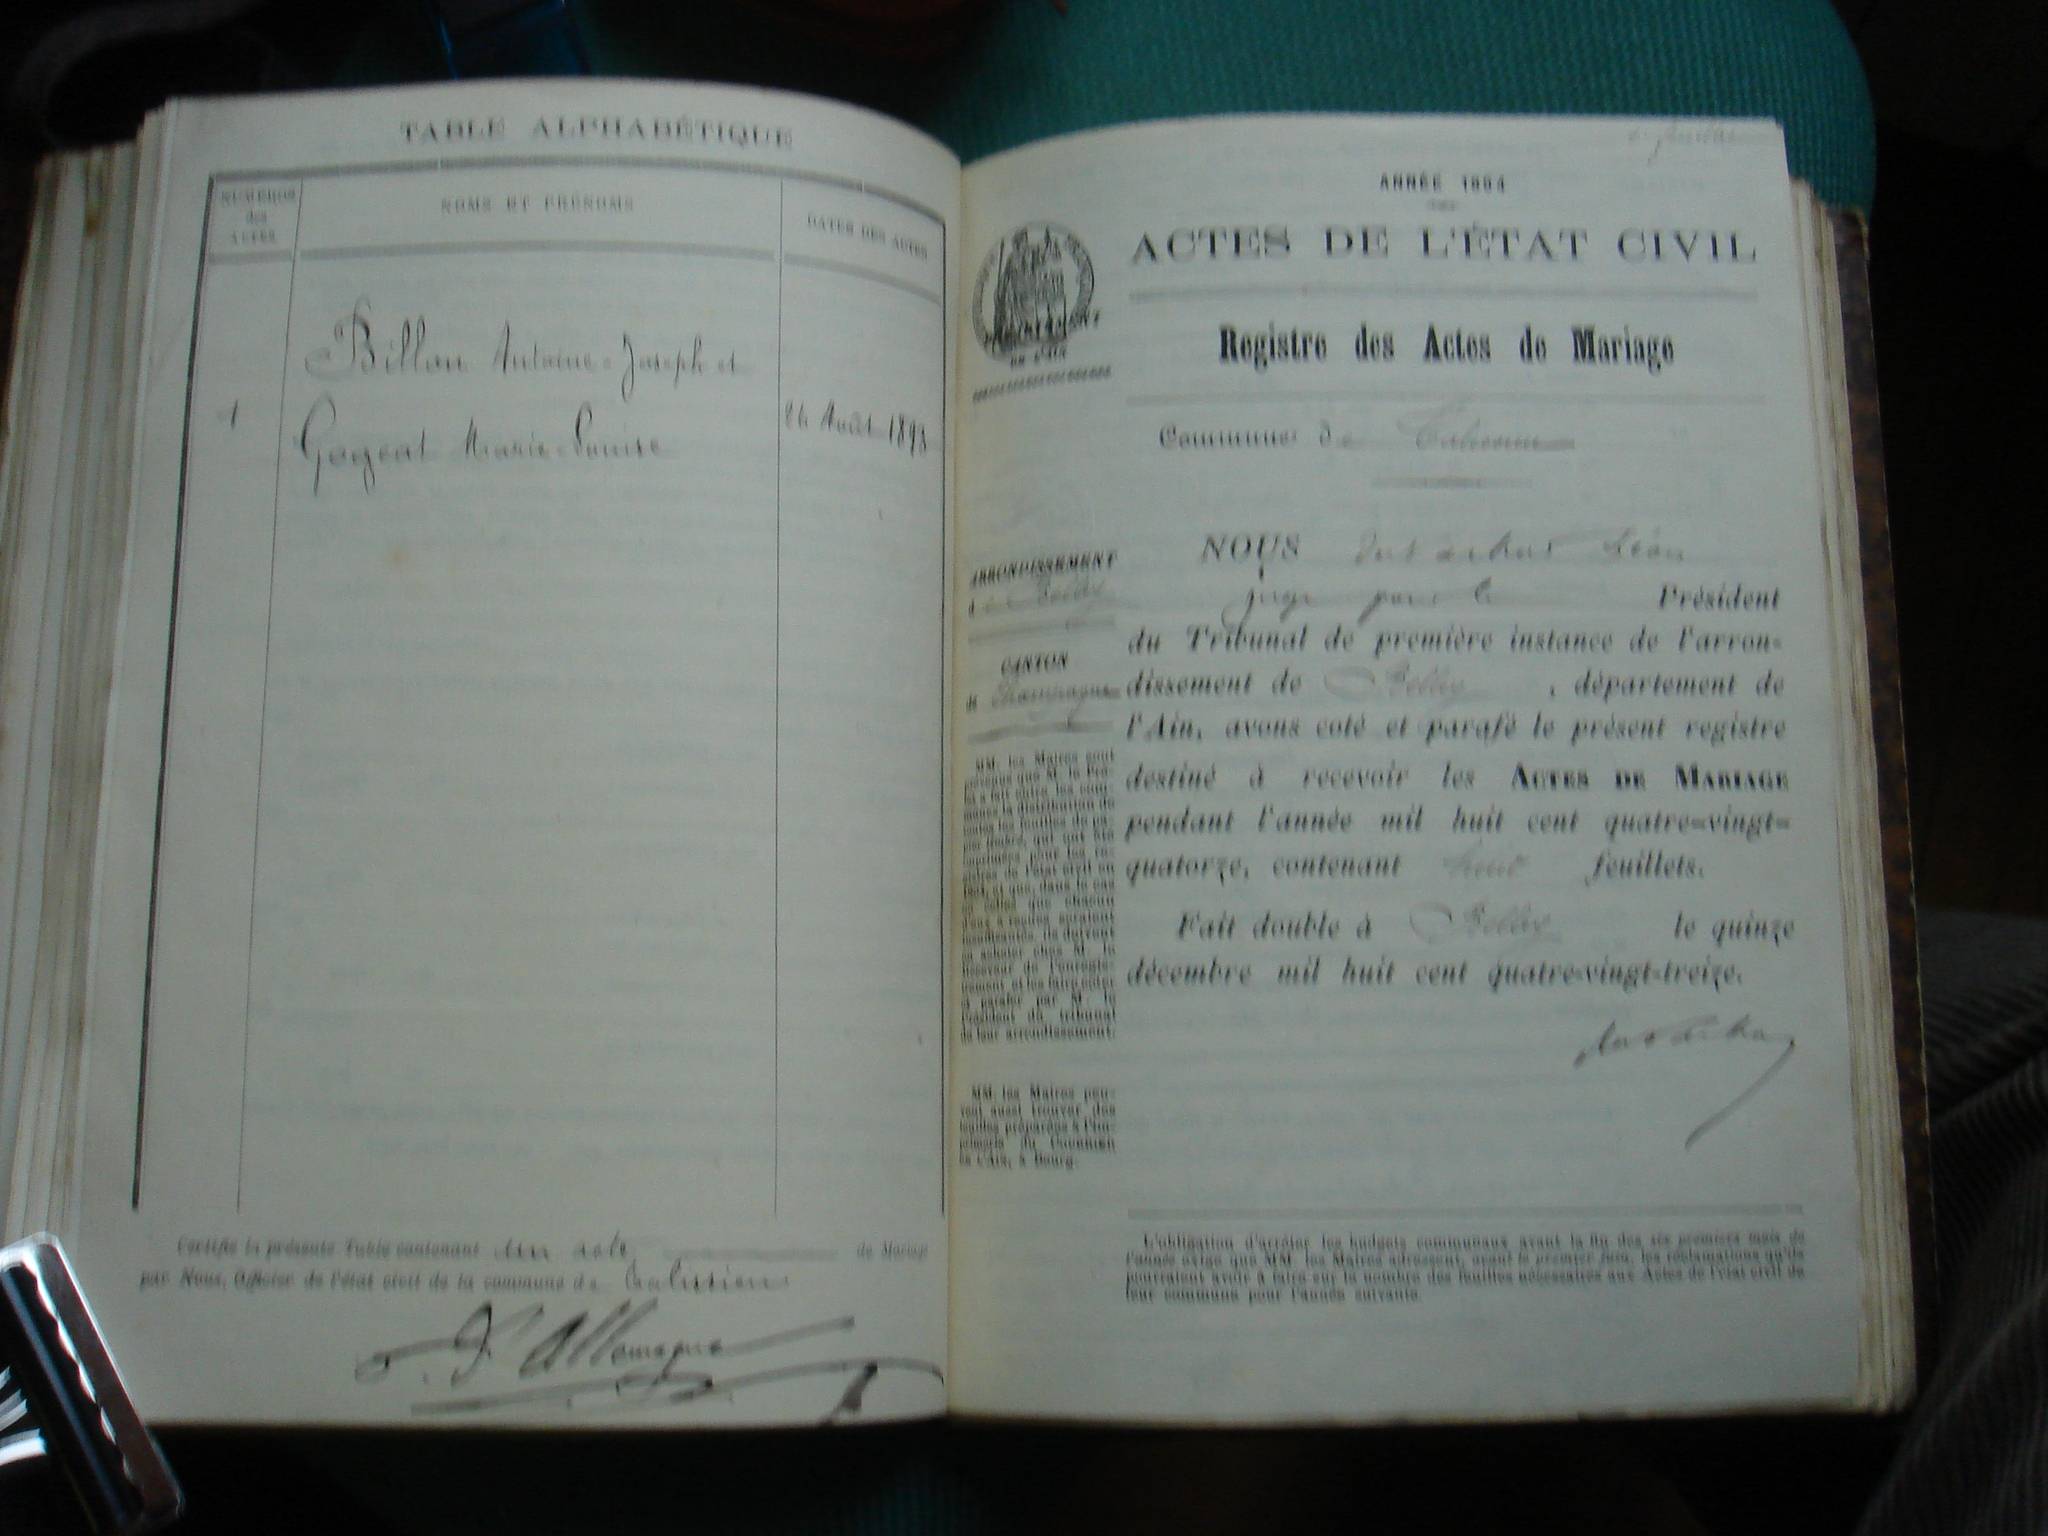 TABLE ALPHABÉTIQUE
NUMÉROS
des
ACTES
NOMS ET PRÉNOMS
DATES DES ACTES
Billon Antoine-Joseph et
1
Gogeat Marie-Louise
24 Août 1893
Certifié la présente Table contenant un acte de Mariage
par Nous, Officier de l'état civil de la commune de Talissieu
D'Allemagne
ANNÉE 1894
ACTES DE L'ÉTAT CIVIL
Registre des Actes de Mariage
Commune de Talissieu
ARRONDISSEMENT
de Belley
CANTON
de Champagne
MM. les Maires sont
prévenus que M. le Pré-
fet a fait entre les com-
munes la distribution de
toutes les feuilles de pa-
pier timbré, qui ont été
employées pour les re-
gistres de l'état civil en
et que, dans le cas
où celles que chacun
d'eux a reçues seraient
insuffisantes, ils doivent
en acheter chez M. le
Receveur de l'enregis-
trement, et les faire coter
et parafer par M. le
Président du tribunal
de leur arrondissement.
MM. les Maires peu-
vent aussi trouver des
feuilles préparées à l'im-
primerie du Courrier
de l'Ain, à Bourg.
NOUS Léon
juge pour le Président
du Tribunal de première instance de l'arron-
dissement de Belley, département de
l'Ain, avons coté et parafé le présent registre
destiné à recevoir les ACTES DE MARIAGE
pendant l'année mil huit cent quatre-vingt-
quatorze, contenant huit feuillets.
Fait double à Belley le quinze
décembre mil huit cent quatre-vingt-treize.
L'obligation d'arrêter les budgets communaux avant la fin des six premiers mois de
l'année exige que MM. les Maires adressent, avant le premier juin, les réclamations qu'ils
pourraient avoir à faire sur le nombre des feuilles nécessaires aux Actes de l'état civil de
leur commune pour l'année suivante.